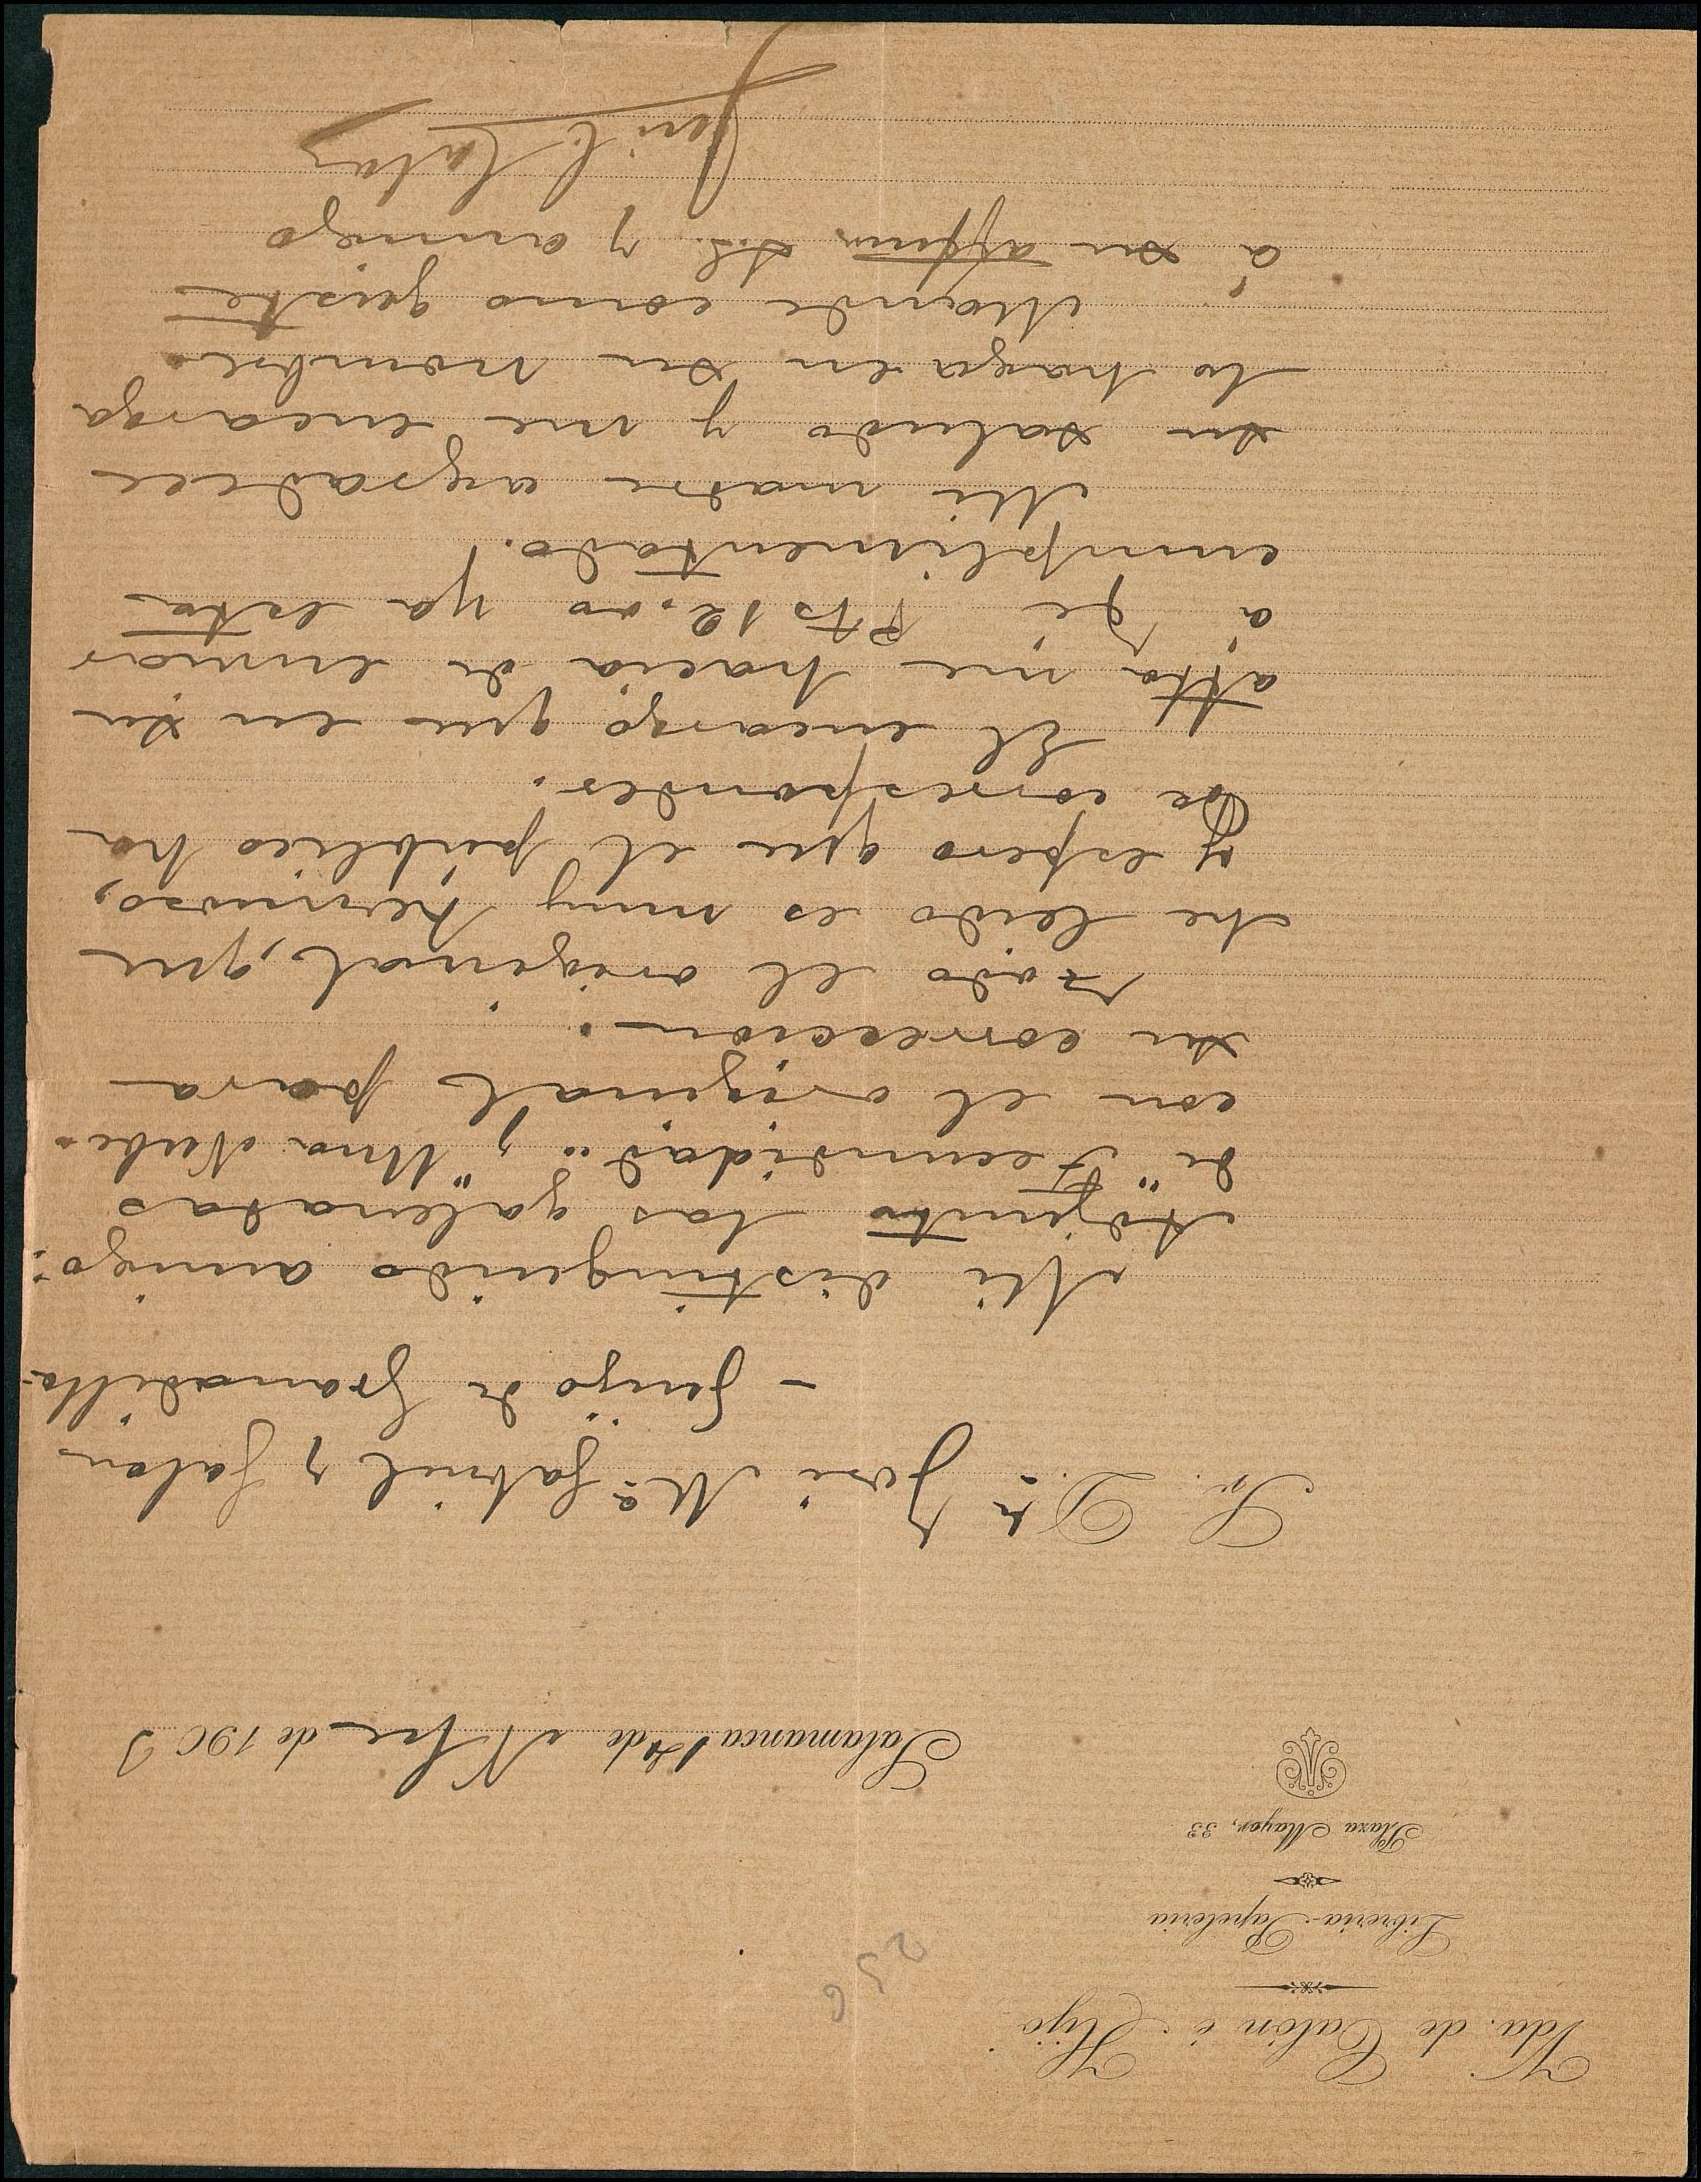 Vda. de Calón é Hijo
Librería-Papelería
Plaza Mayor, 33
256
Salamanca 14 de Nbre de 190
Sr. D. José Mª Gabriel y Galan
- Guijo de Granadilla -
Mi distinguido amigo:
Adjunto las galeradas
de "Fecundidad" y "Una Nube"
con el original para
su corrección.
Todo el original, que
he leido es muy hermoso,
y espero que el público ha
de corresponder.
El encargo que en su
atta me hacia de enviar
á Pts 12,00 ya esta
cumplimentado.
Mi madre agradece
su saludo y me encarga
lo haga en su nombre.
Mande como guste
á su affmo s.s. y amigo